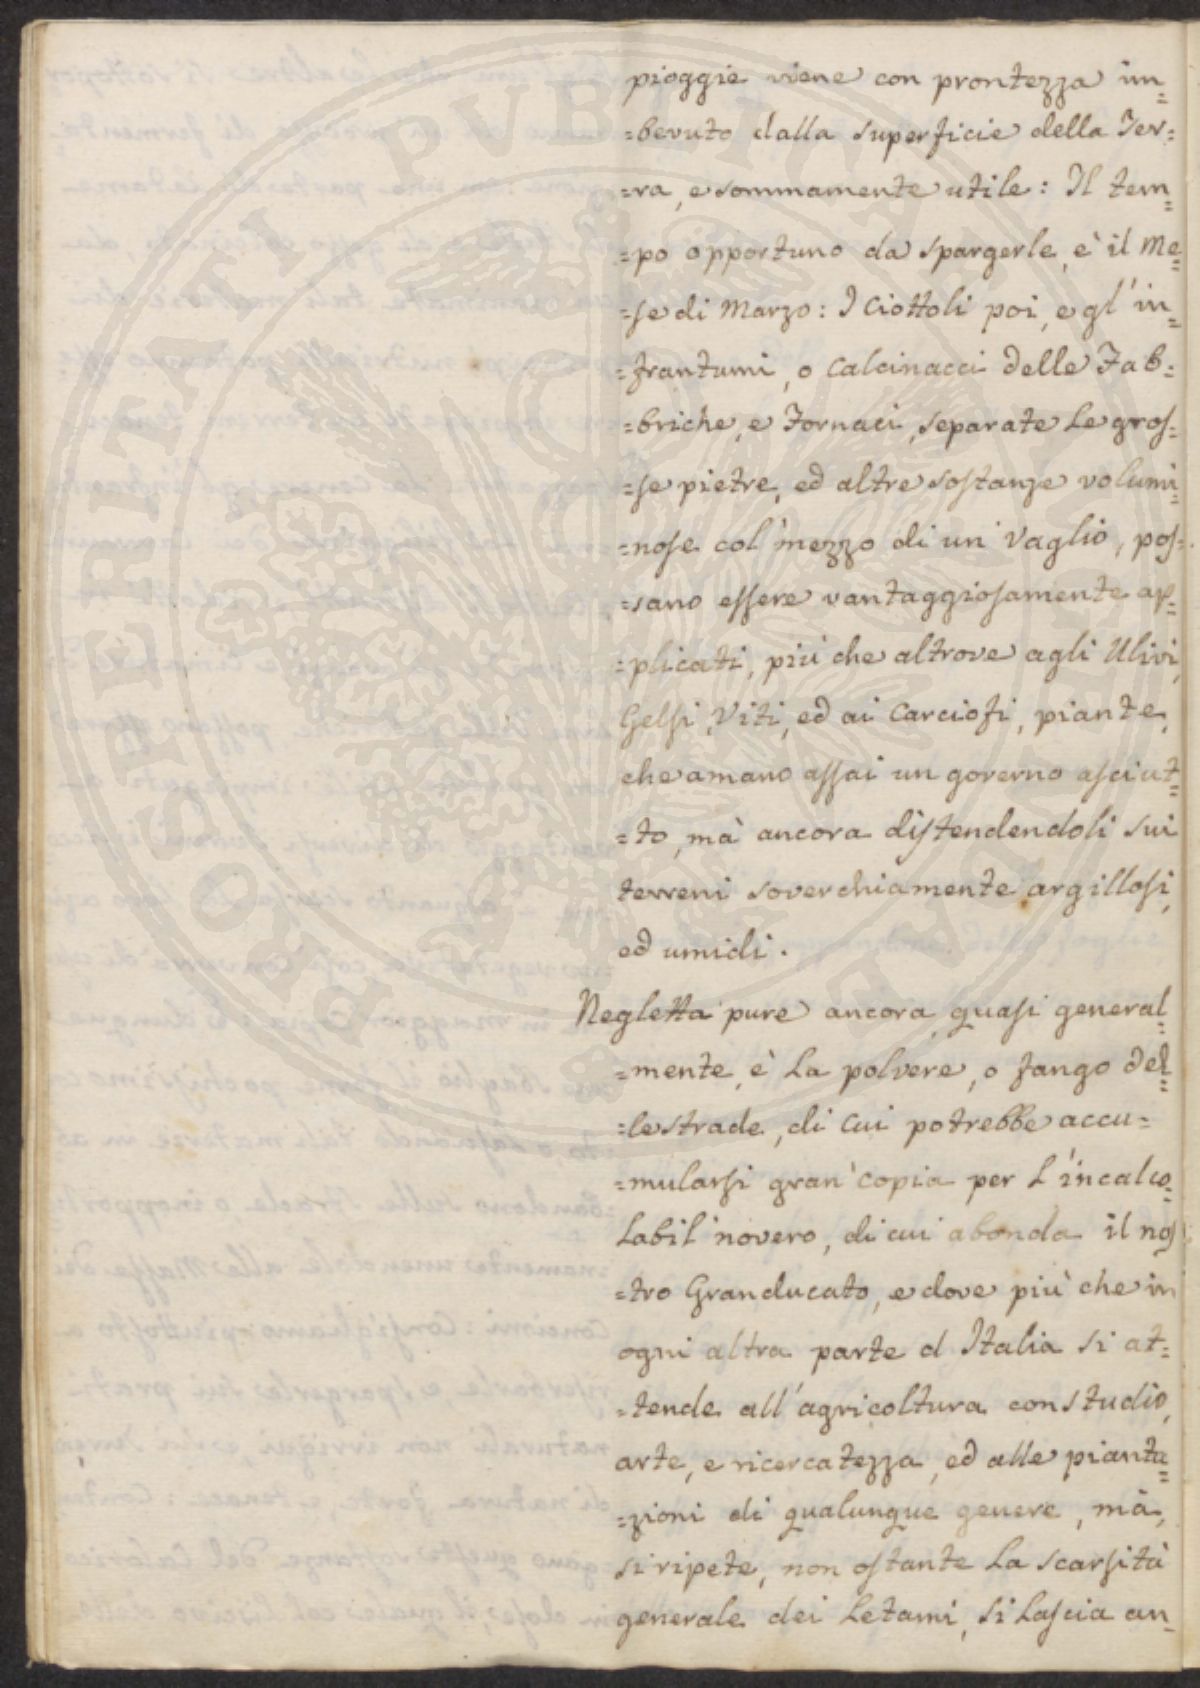 pioggie viene con prontezza im=
=bevuto dalla superficie della Ter=
=ra, e sommamente utile: Il tem=
=po opportuno da spargerle, è il Me=
=se di Marzo: I Ciottoli poi, e gl'in=
=frantumi, o Calcinacci delle Fab=
=briche, e Fornaci, separate le gros=
=se pietre, ed altre sostanze volumi=
=nose col' mezzo di un' Vaglio, pos=
=sano essere vantaggiosamente ap=
=plicati, più che altrove agli Ulivi,
Gelsi, Viti, ed ai Carciofi, piante,
che amano assai un governo asciut=
=to, mà ancora distendendoli sui
terreni soverchiamente argillosi,
ed umidi.
Negletta pure ancora quasi general=
=mente, è la polvere, o fango del=
=le strade, di cui potrebbe accu=
=mularsi gran' copia per l'incalco=
labil' novero, di cui abonda il nos
=tro Granducato, e dove più che in
ogni altra parte d Italia si at=
=tende all'agricoltura con studio,
arte, e ricercatezza, ed alle pianta=
=zioni di qualunque genere, mà,
si ripete, non ostante la scarsità
generale dei Letami, si lascia an=
PROSPERITATI PUBLICAE AUGENDAE